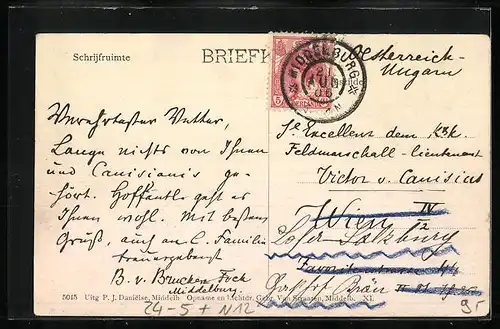 Schrijfruimte
BRIEFK
Oesterreich-
Ungarn
MIDDELBURG
5
Verehrtester Vetter,
Lange nichts von Ihnen
und Canisianis ge-
hört. Hoffentl. geht es
Ihnen wohl. Mit bestem
Gruß, auch an l. Familie
treuergebenst
B. v. Brucken Fock
Middelburg.
Se Excellenz dem k&k.
Feldmarschall-lieutenant
Victor v. Canisius
Wien IV
Lofer Salzburg
5045 Uitg P. J. Daniëlse, Middelb Opname en Lichtdr. Gebr. Van Straaten, Middelb. XI.
24-5 + N12
95